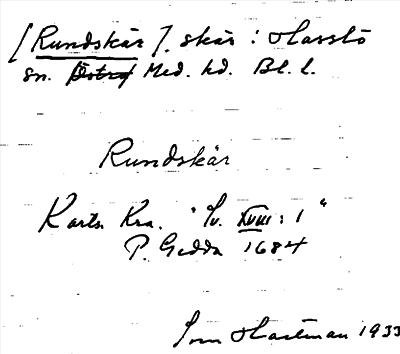 [Rundskär]. skär : Hasslö
sn. Med. hd. Bl. l.
Rundskär
Kartv. Kra. "Sv. XVIII : 1"
P. Gedda 1684
Hartman 1933